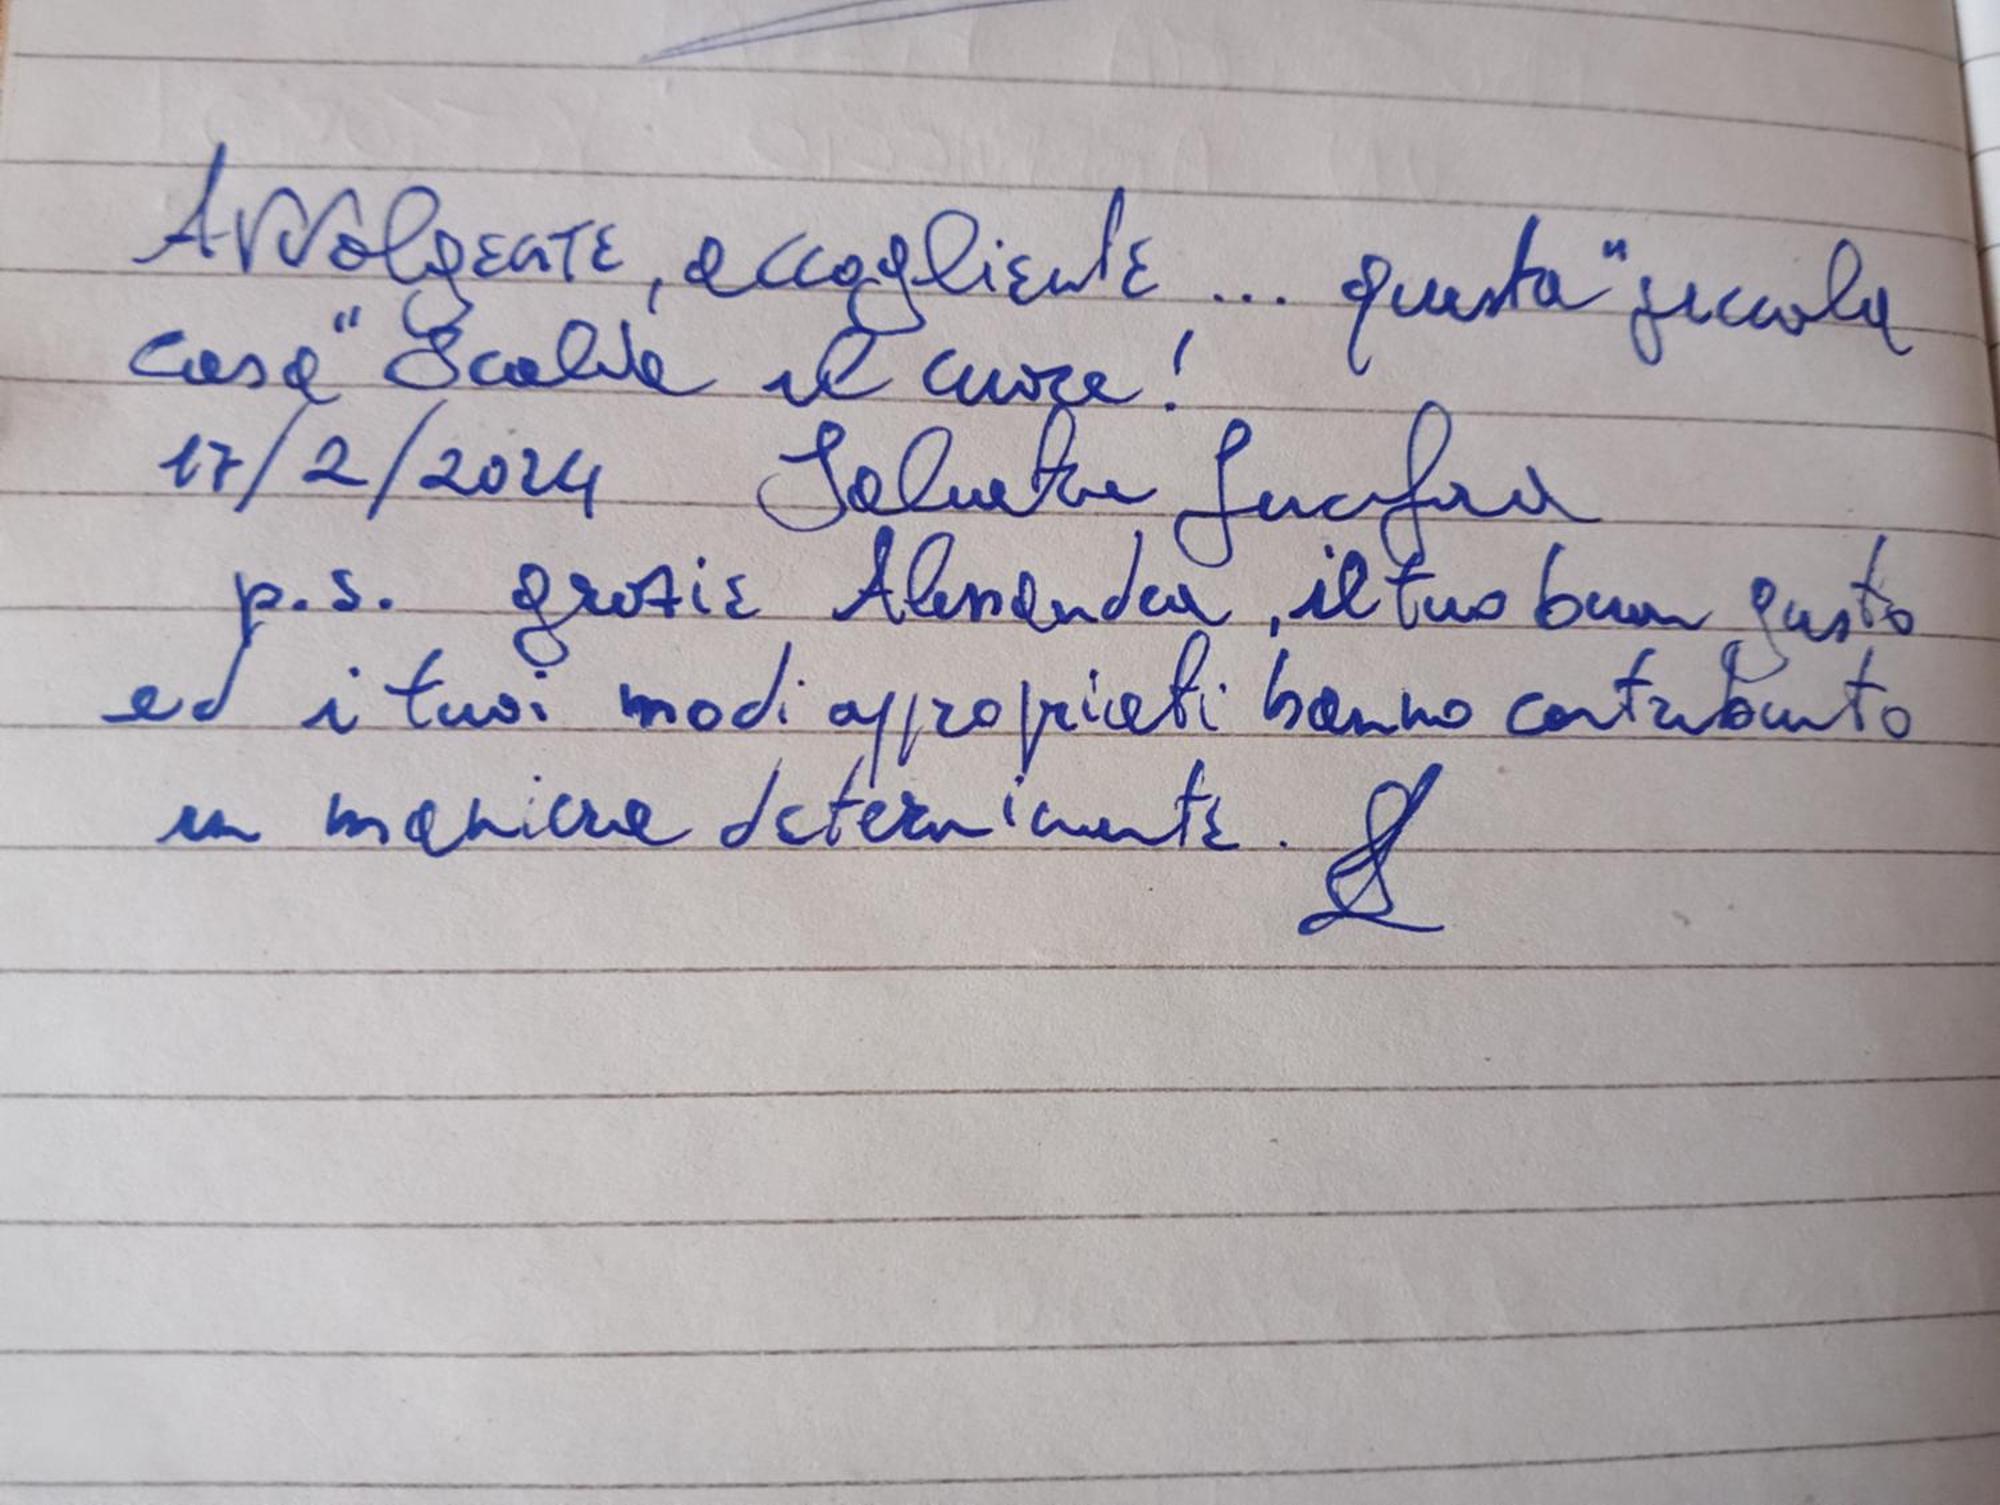 Avvolgente, accogliente ... questa "piccola
casa" Scalda il cuore!
17/2/2024 Salvatore
p.s. grazie Alessandra, il tuo buon gusto
ed i tuoi modi appropriati hanno contribuito
in maniera determinante.